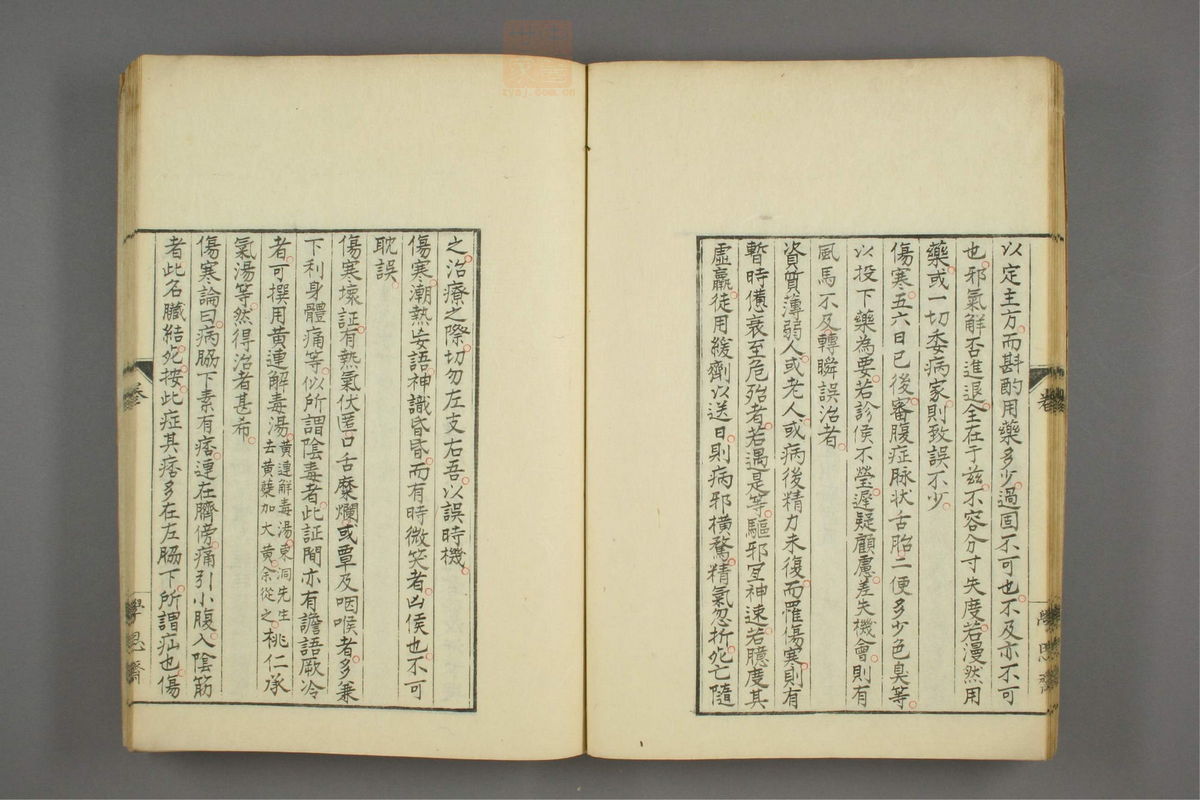 以定主方而斟酌用藥多少過固不可也不及亦不可
也邪氣解否進退全在于兹不容分寸失度若漫然用
藥或一切委病家則致誤不少
傷寒五六日已後審腹症脉状舌胎二便多少色臭等
以投下藥為要若診候不瑩遲疑顧慮差失機會則有
風馬不及轉瞬誤治者
資質薄弱人或老人或病後精力未復而罹傷寒則有
暫時憊衰至危殆者若遇是等驅邪宜神速若臆度其
虛羸徒用緩劑以送日則病邪横騖精氣忽折死亡隨
之治療之際切勿左支右吾以誤時機
傷寒潮熱妄語神識昏昏而有時微笑者凶候也不可
耽誤
傷寒壞証有熱氣伏匿口舌糜爛或蕈及咽喉者多兼
下利身體痛等似所謂陰毒者此証間亦有譫語厥冷
者可撰用黄連解毒湯黄連解毒湯東洞先生去黄蘗加大黄余從之桃仁承
氣湯等然得治者甚希
傷寒論曰病脇下素有痞連在臍傍痛引小腹入陰筋
者此名臟結死按此症其痞多在左脇下所謂疝也傷
卷
學思齋